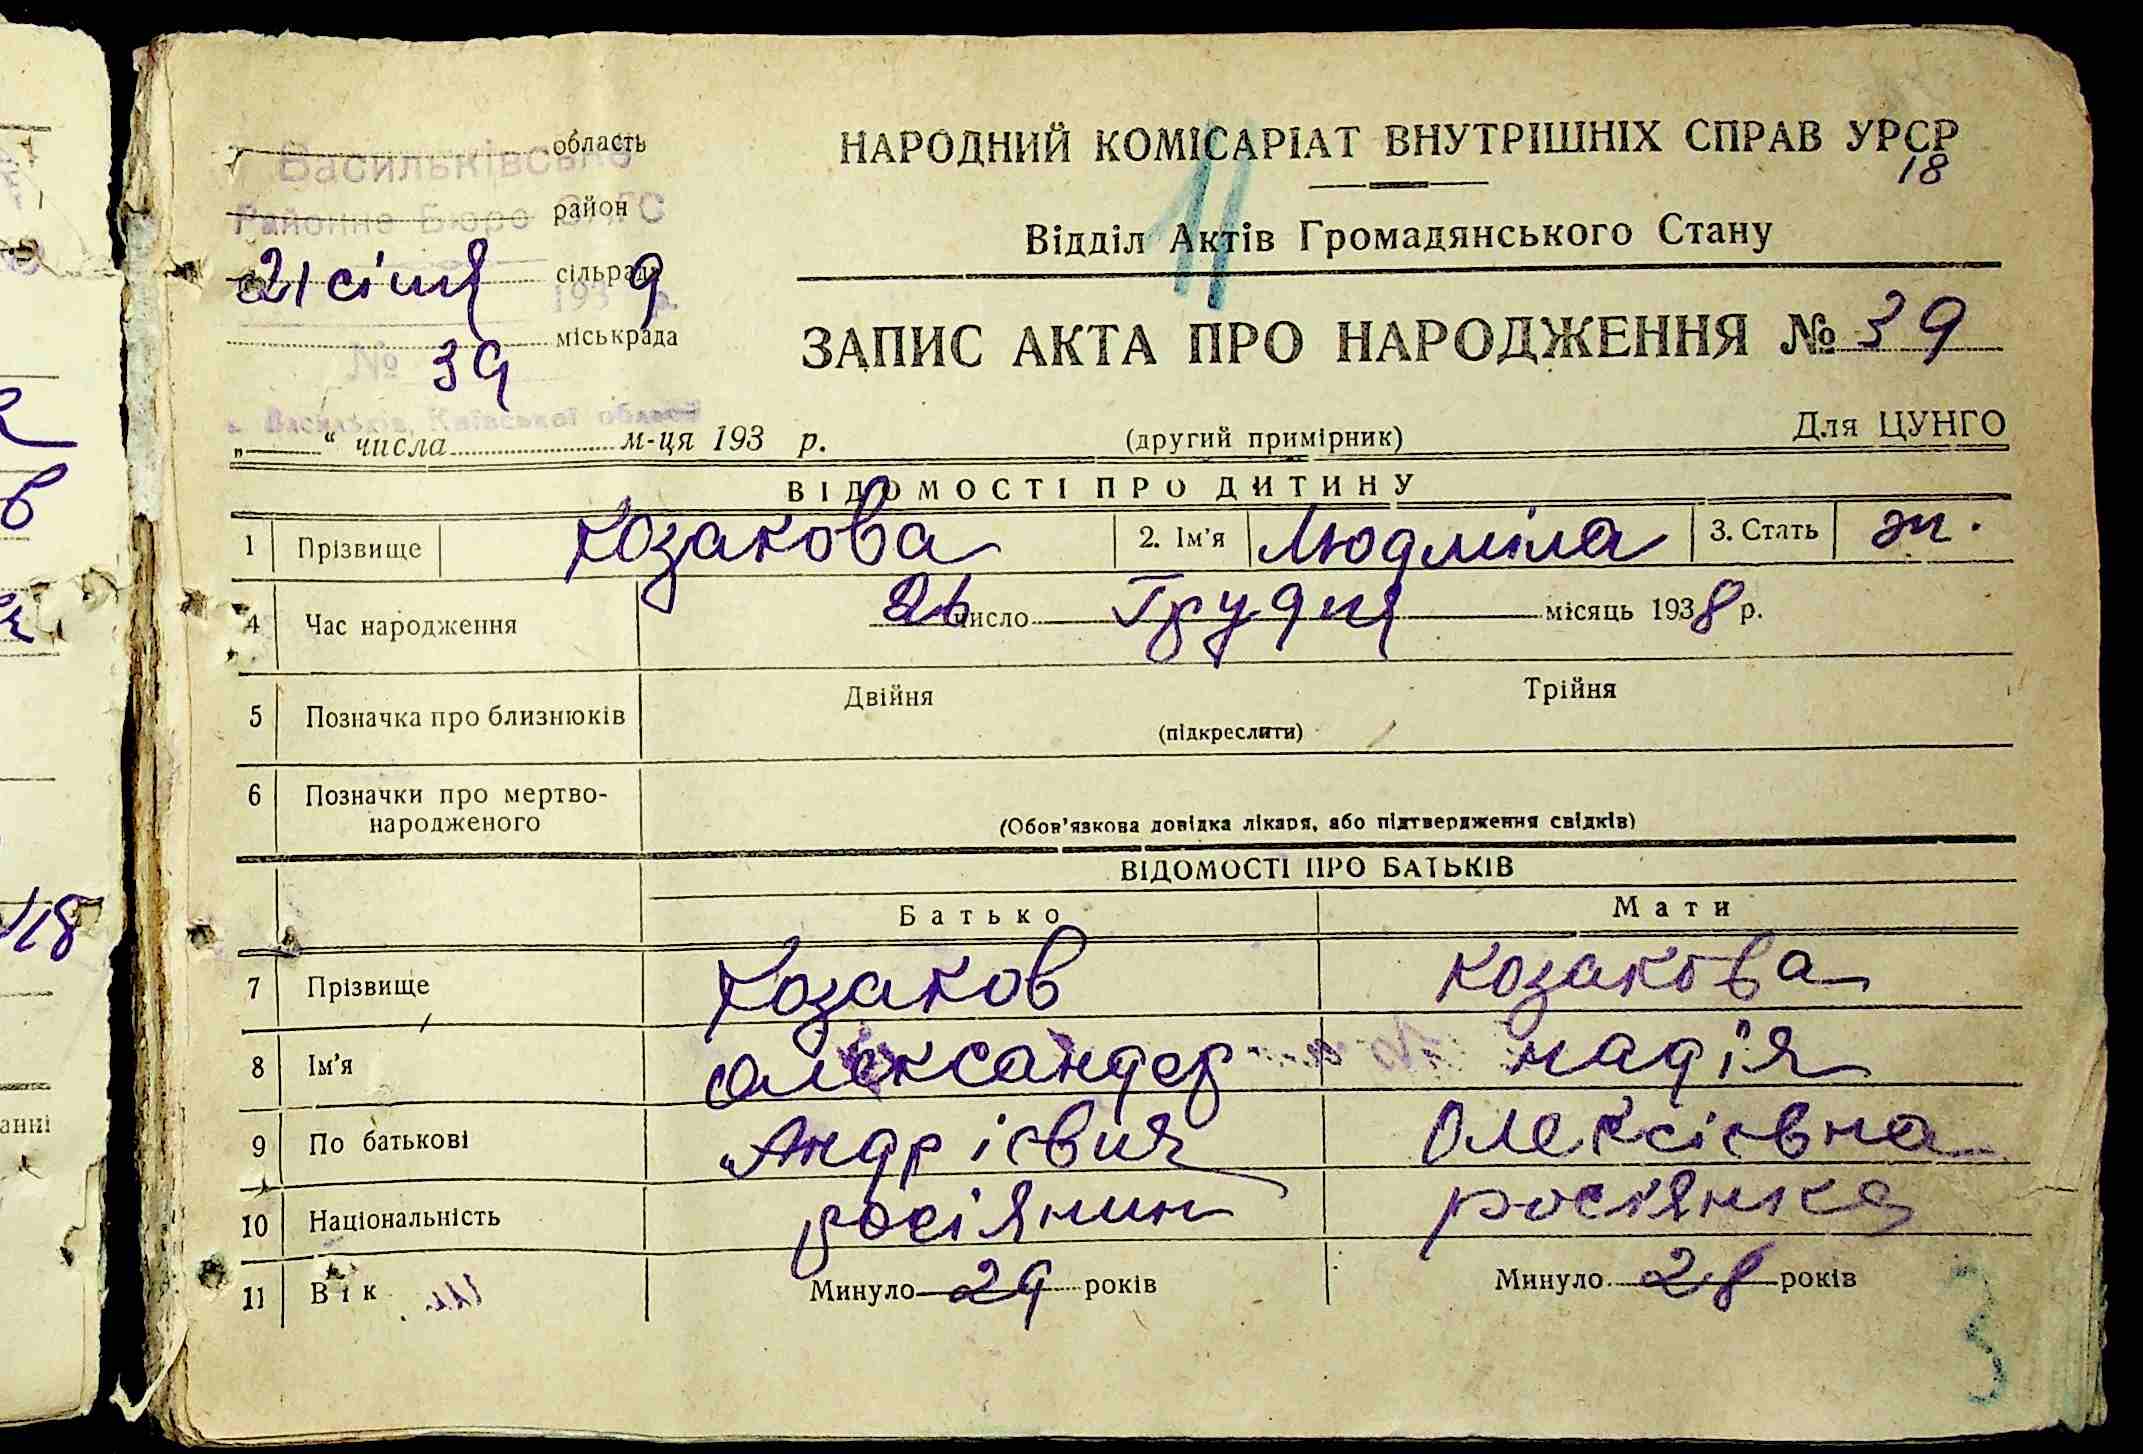 область
Васильківське
НАРОДНИЙ КОМІСАРІАТ ВНУТРІШНІХ СПРАВ УРСР
18
Районне Бюро ЗАГС район
11
Відділ Актів Громадянського Стану
21 січня сільрада 193 9 р.
міськрада
№ 39
ЗАПИС АКТА ПРО НАРОДЖЕННЯ № 39
м. Васильків, Київської області
„ “ числа м-ця 193 р.
(другий примірник)
Для ЦУНГО
ВІДОМОСТІ ПРО ДИТИНУ
1 Прізвище Козакова 2. Ім'я Людміла 3. Стать ж.
4 Час народження 26 число Грудня місяць 1938 р.
5 Позначка про близнюків Двійня Трійня
(підкреслити)
6 Позначки про мертво-
народженого
(Обов'язкова довідка лікаря, або підтвердження свідків)
ВІДОМОСТІ ПРО БАТЬКІВ
Батько Мати
7 Прізвище Козаков Козакова
8 Ім'я Олександер Надія
9 По батькові Андрієвич Олексієвна
10 Національність росіянин росіянка
11 Вік Минуло 29 років Минуло 28 років
3